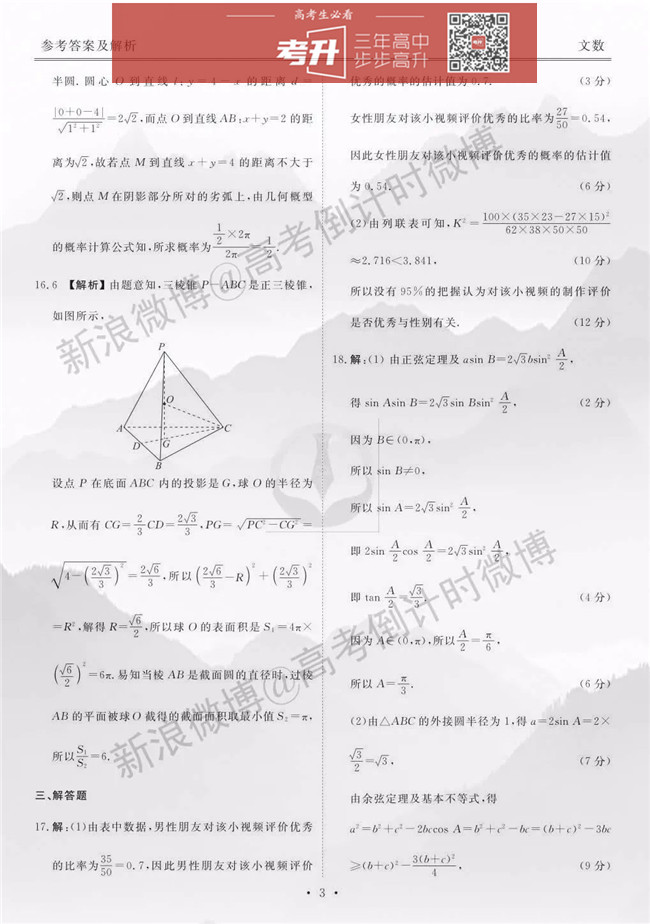 高考生必看
考升 三年高中
步步高升
参考答案及解析
文数
半圆.圆心O到直线l:y=4-x的距离d=
|0+0-4|/√(1²+1²)=2√2,而点O到直线AB:x+y=2的距
离为√2,故若点M到直线x+y=4的距离不大于
√2,则点M在阴影部分所对的劣弧上,由几何概型
的概率计算公式知,所求概率为(1/2×2π)/2π=1/2.
16.6 【解析】由题意知,三棱锥P-ABC是正三棱锥,
如图所示,
P
O
A
C
D
G
B
设点P在底面ABC内的投影是G,球O的半径为
R,从而有CG=2/3CD=2√3/3,PG=√(PC²-CG²)=
√(4-(2√3/3)²)=2√6/3,所以(2√6/3-R)²+(2√3/3)²
=R²,解得R=√6/2,所以球O的表面积是S₁=4π×
(√6/2)²=6π.易知当棱AB是截面圆的直径时,过棱
AB的平面被球O截得的截面面积取最小值S₂=π,
所以S₁/S₂=6.
三、解答题
17.解:(1)由表中数据,男性朋友对该小视频评价优秀
的比率为35/50=0.7,因此男性朋友对该小视频评价
优秀的概率的估计值为0.7. (3分)
女性朋友对该小视频评价优秀的比率为27/50=0.54,
因此女性朋友对该小视频评价优秀的概率的估计值
为0.54. (6分)
(2)由列联表可知,K²=100×(35×23-27×15)²/62×38×50×50
≈2.716<3.841, (10分)
所以没有95%的把握认为对该小视频的制作评价
是否优秀与性别有关. (12分)
18.解:(1)由正弦定理及asin B=2√3bsin² A/2,
得sin Asin B=2√3sin Bsin² A/2, (2分)
因为B∈(0,π),
所以sin B≠0,
所以sin A=2√3sin² A/2,
即2sin A/2 cos A/2=2√3sin² A/2,
即tan A/2=√3/3, (4分)
因为A∈(0,π),所以A/2=π/6,
所以A=π/3. (6分)
(2)由△ABC的外接圆半径为1,得a=2sin A=2×
√3/2=√3, (7分)
由余弦定理及基本不等式,得
a²=b²+c²-2bccos A=b²+c²-bc=(b+c)²-3bc
≥(b+c)²-3(b+c)²/4, (9分)
• 3 •
新浪微博@高考倒计时微博
新浪微博@高考倒计时微博